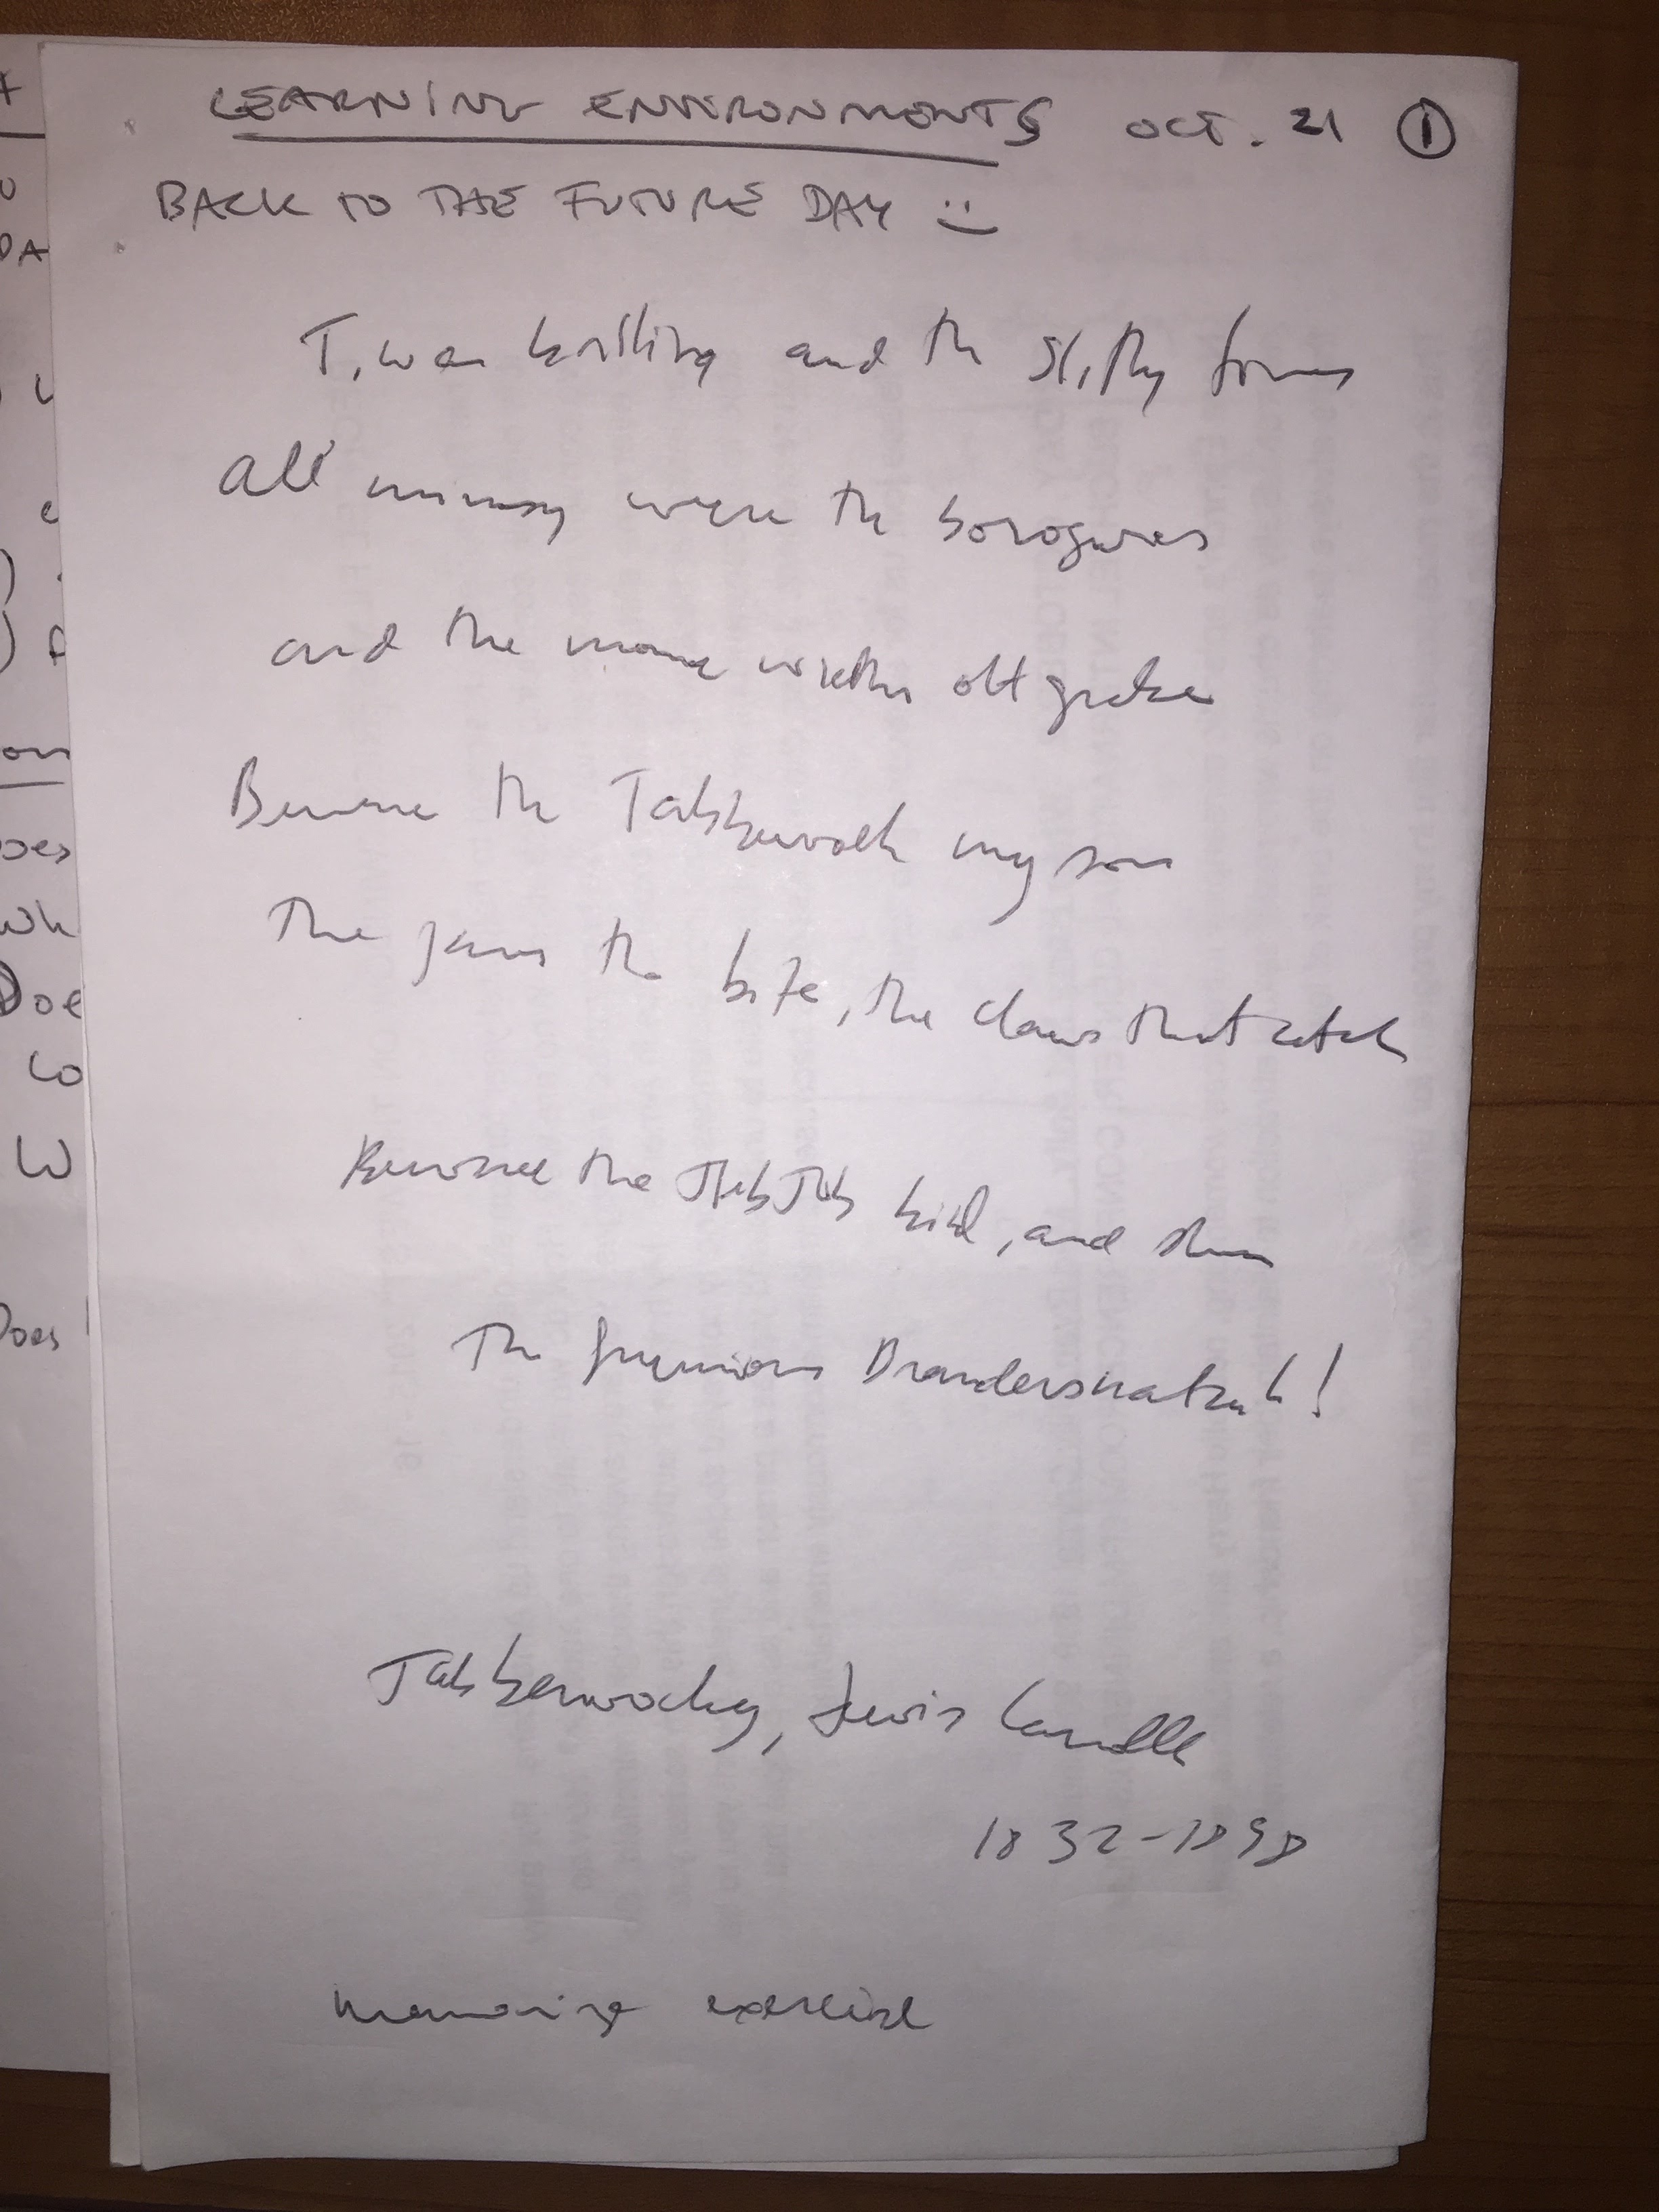 LEARNING ENVIRONMENTS OCT. 21 ①
BACK TO THE FUTURE DAY :)
T, was brilling and the slithy
all mimsy were the borogoves
and the mome oft
Beware the Jabberwock my son
The jaws the bite, the claws that catch
Beware the JubJub bird, and shun
The frumious Brandersnatch!
Jabberwocky, Lewis Carroll
1832-1898
exercise